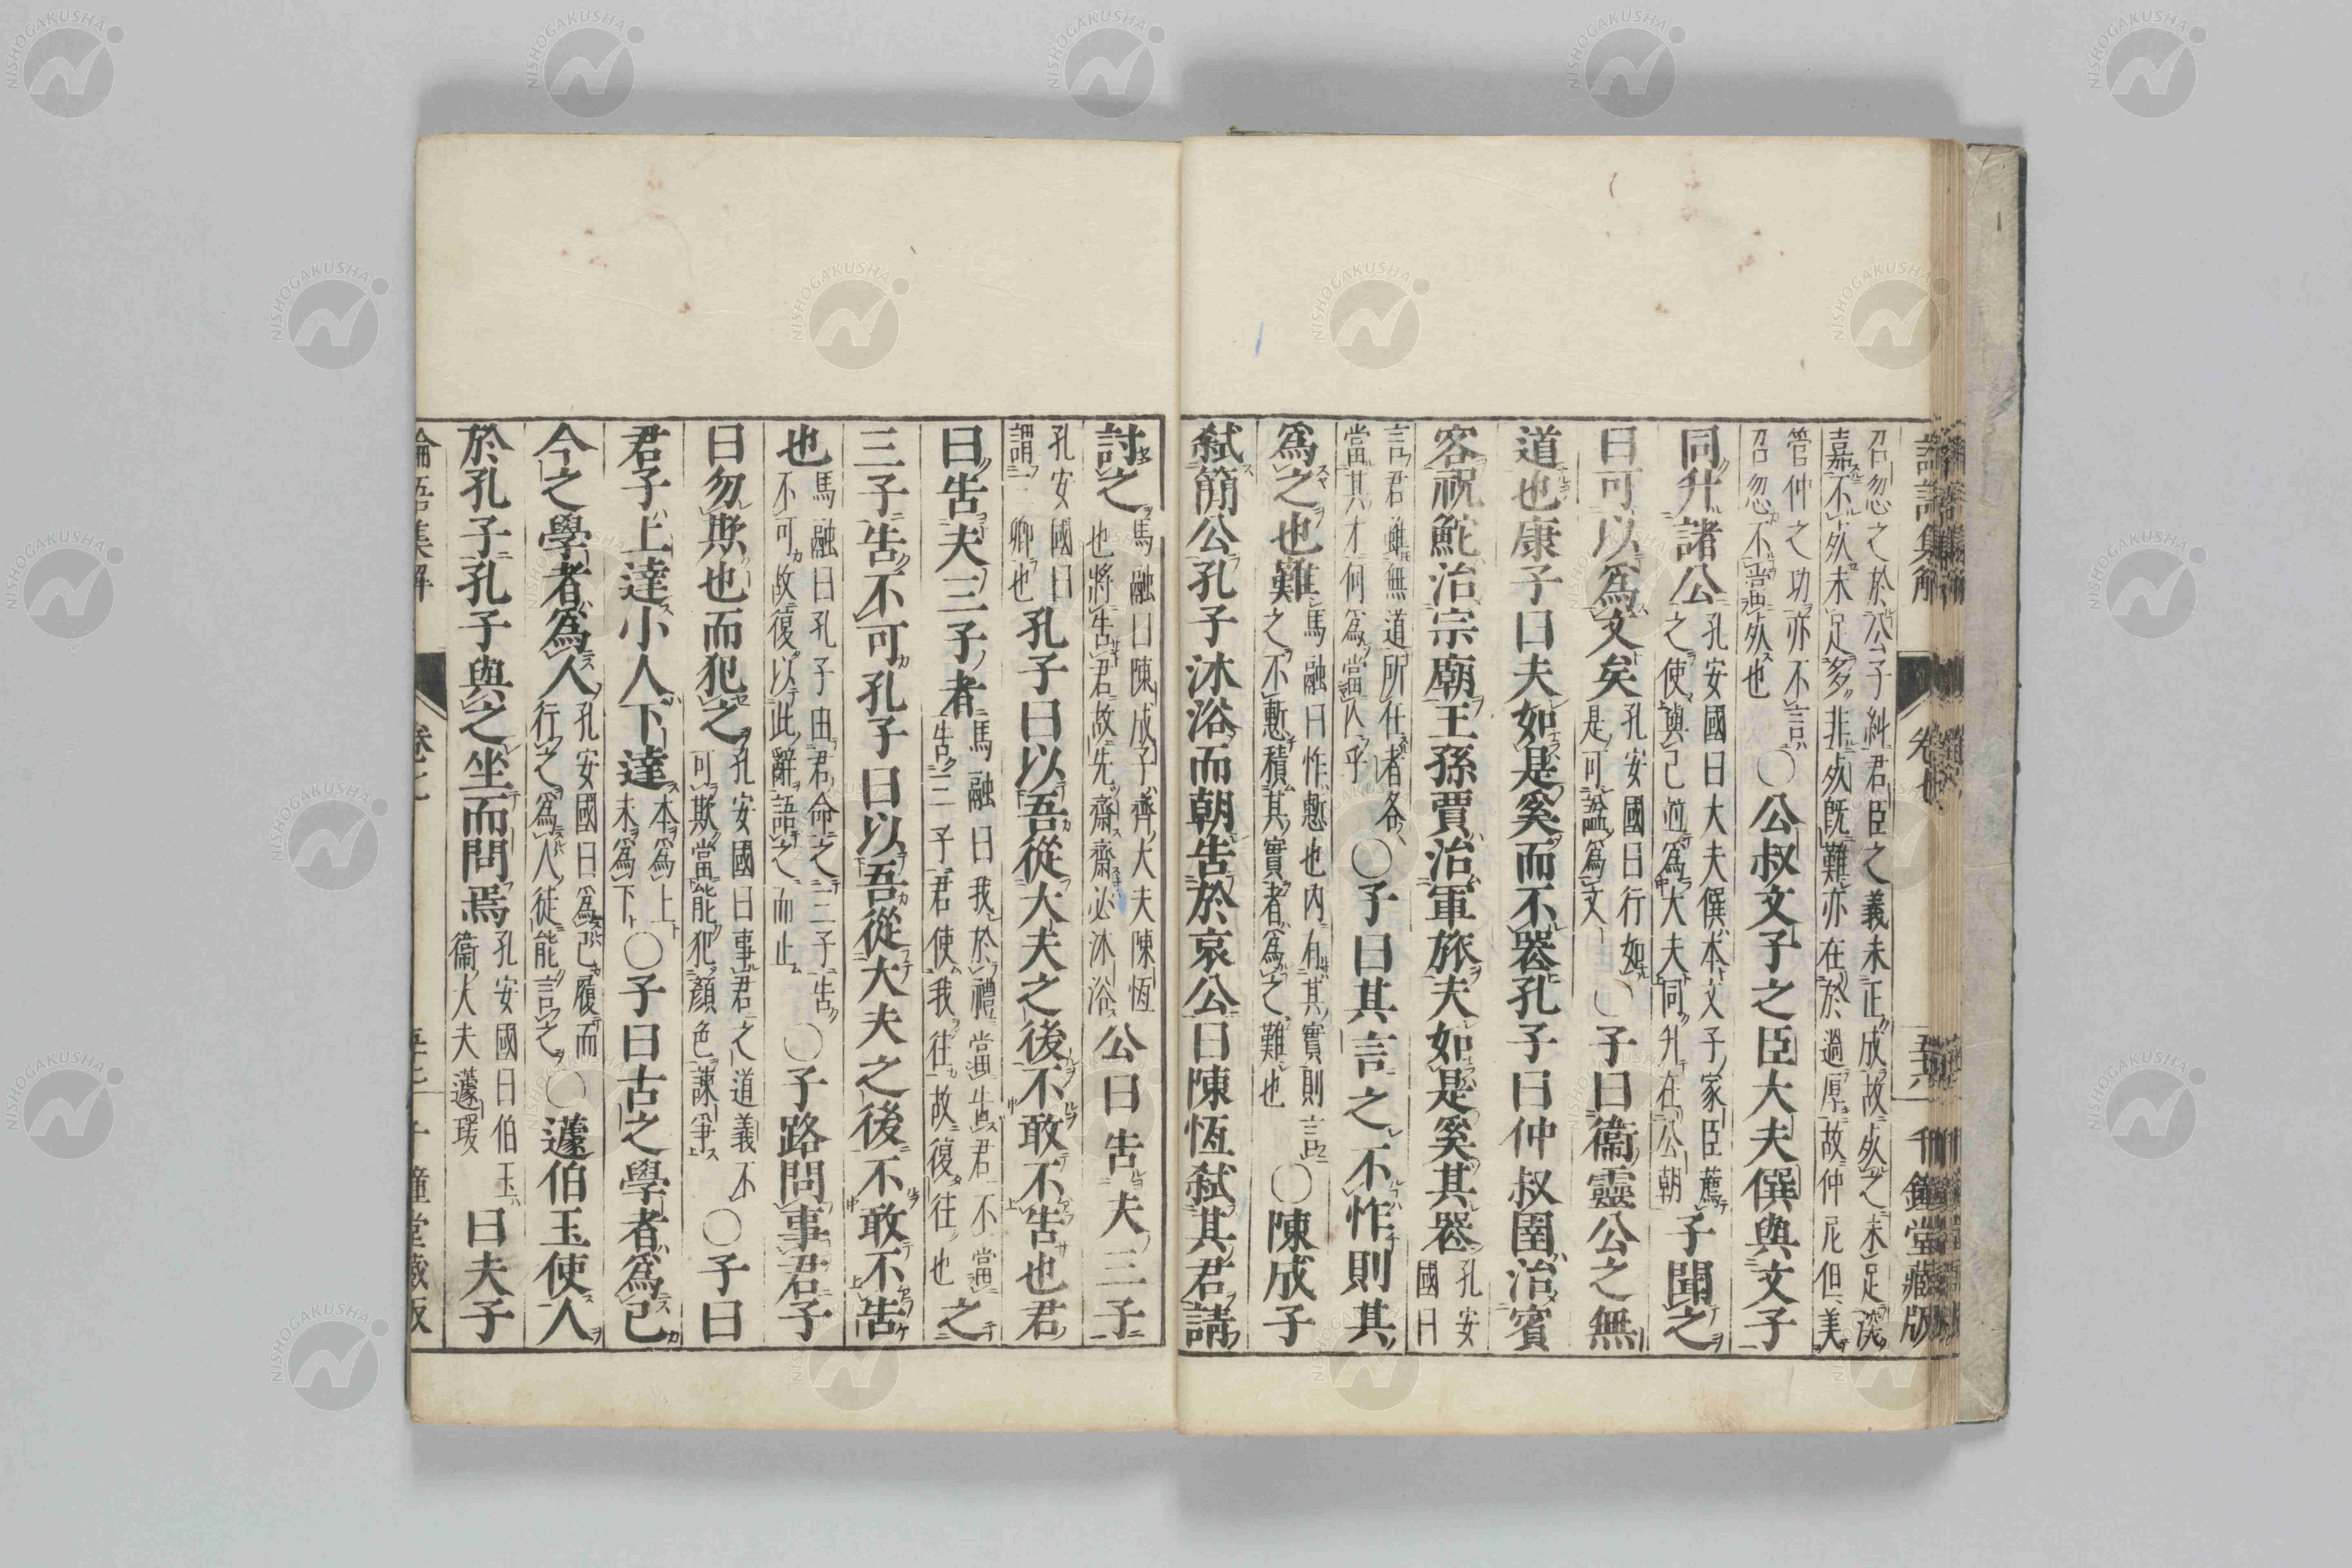 召忽之於公子糾君臣之義未正成故死之未足深
嘉不死未足多非死既難亦在於過厚故仲尼但美
管仲之功亦不言
召忽不當死也〇公叔文子之臣大夫僎與文子
同升諸公孔安國曰大夫僎本文子家臣薦
之使與己竝爲大夫同升在公朝子聞之
曰可以爲文矣孔安國曰行如
是可謚爲文〇子曰衞靈公之無
道也康子曰夫如是奚而不喪孔子曰仲叔圉治賓
客祝鮀治宗廟王孫賈治軍旅夫如是奚其喪孔安
國曰
言君雖無道所任者各
當其才何爲當亡乎〇子曰其言之不怍則其
爲之也難馬融曰怍慙也內有其實則言
之不慙積其實者爲之難也〇陳成子
弑簡公孔子沐浴而朝告於哀公曰陳恆弑其君請
討之馬融曰陳成子齊大夫陳恆
也將告君故先齋齋必沐浴公曰告夫三子
孔安國曰
謂三卿也孔子曰以吾從大夫之後不敢不告也君
曰告夫三子者馬融曰我於禮當告君不當
告三子君使我往故復往也之
三子告不可孔子曰以吾從大夫之後不敢不告
也馬融曰孔子由君命之三子告
不可故復以此辭語之而止〇子路問事君子
曰勿欺也而犯之孔安國曰事君之道義不
可欺當能犯顏色諫爭〇子曰
君子上達小人下達本爲上
末爲下〇子曰古之學者爲己
今之學者爲人孔安國曰爲己履而
行之爲人徒能言之〇蘧伯玉使人
於孔子孔子與之坐而問焉孔安國曰伯玉
衞大夫蘧瑗曰夫子
論語集解 卷七 千鐘堂藏版